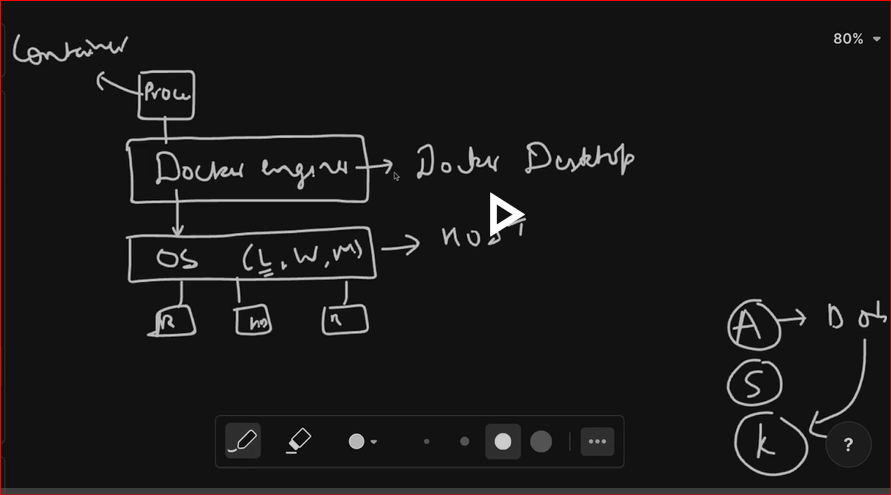 Container
80%
Proce
Docker engine
Docker Desktop
OS (L, W, M)
HOST
R
HD
A
S
K
?